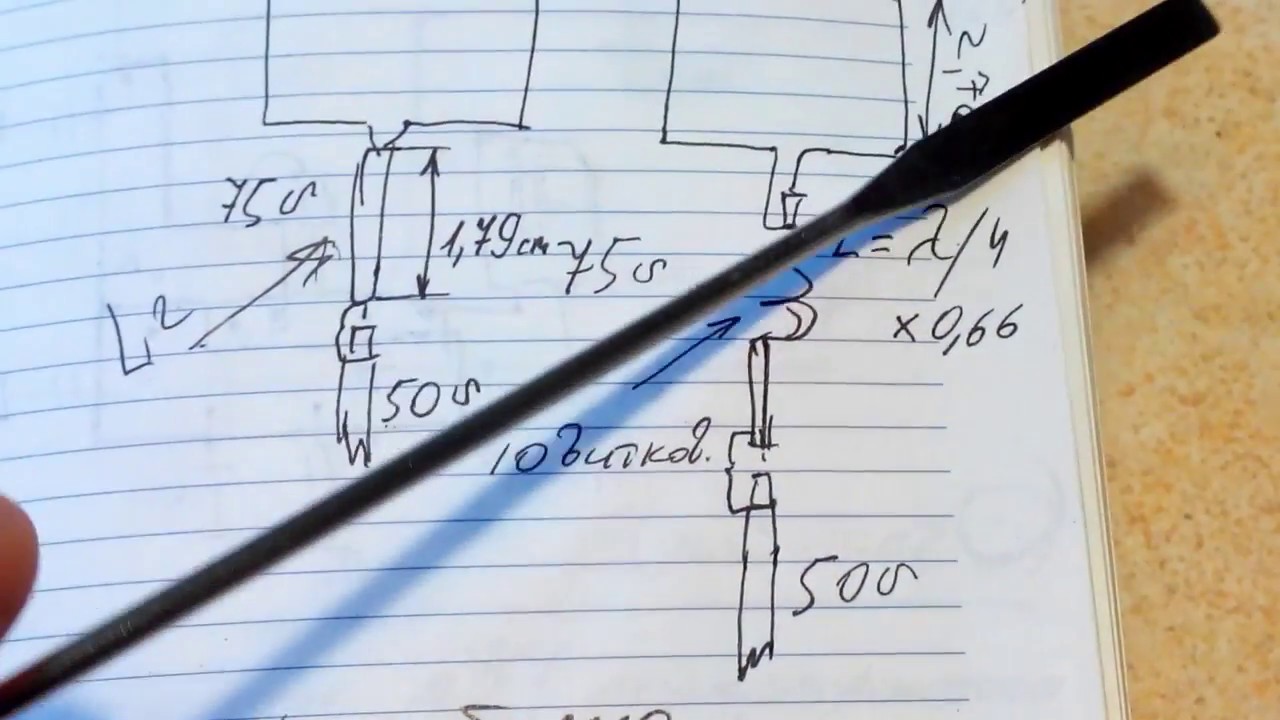 75Ω
1,79см
75Ω
L²
50Ω
L = λ/4
x 0,66
10 витков.
50Ω